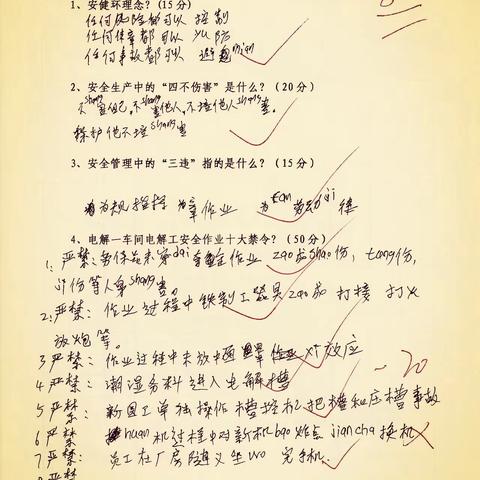 1、安健环理念?(15分)
任何风险都可以控制
任何违章都可以预防
任何事故都可以避mian
2、安全生产中的“四不伤害”是什么?(20分)
不shang害自己,不shang害他人,不培他人shang害。
保护他人不培shang害
3、安全管理中的“三违”指的是什么?(15分)
为规指挥 为章作业 为fan劳动ji律
4、电解一车间电解工安全作业十大禁令?(50分)
1、严禁:劳保花未穿dai 作业 zao成shao伤,tang伤,
ji伤等人身shang害。
2、严禁:作业过程中铁制工器具zao成 打接 打火
放炮等。
3 严禁:作业过程中未放中 效应
4 严禁:潮湿务料进入电解槽
5 严禁:新员工单独操作槽控机把槽和压槽事故
6 严禁:huan机过程中对新机bao jiancha换机
7 严禁:员工在厂房 坐wo 完手机